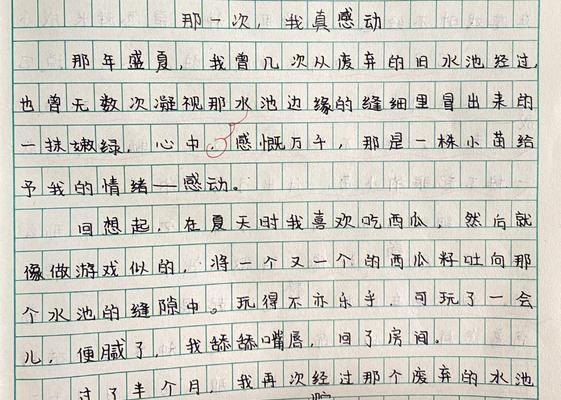 那一次，我真感动
那年盛夏，我曾几次从废弃的旧水池经过，
也曾无数次凝视那水池边缘的缝细里冒出来的
一抹嫩绿，心中．感慨万千，那是一株小苗给
予我的情绪——感动。
回想起，在夏天时我喜欢吃西瓜，然后就
像做游戏似的，将一个又一个的西瓜籽吐向那
个水池的缝隙中。玩得不亦乐乎，可玩了一会
儿，便腻了，我舔舔嘴唇，回了房间。
过了半个月，我再次经过那个废弃的水池